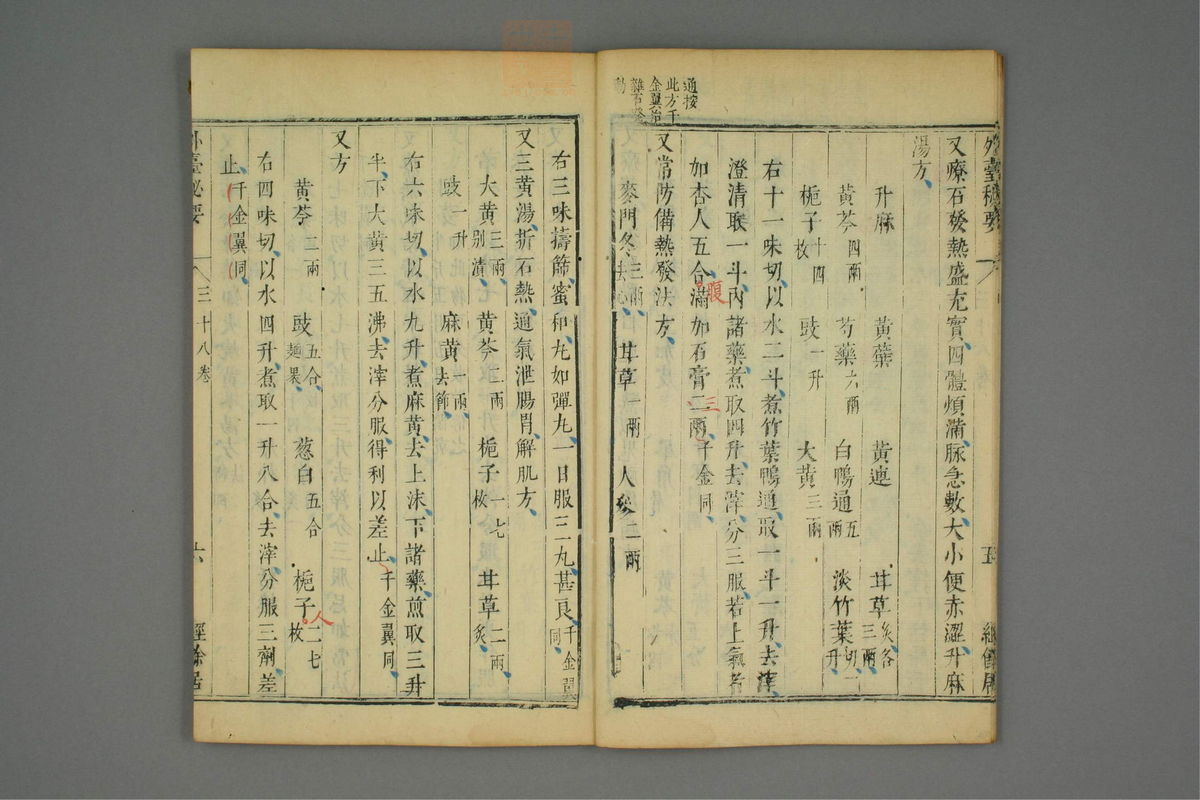 通按
此方千
金翼治
雜石發
動
又療石發熱盛充實四體煩滿脉急數大小便赤澀升麻
湯方
升麻 黃蘗 黃連 甘草炙各三兩
黃芩四兩 芍藥六兩 白鴨通五兩 淡竹葉切一升
梔子十四枚 豉一升 大黃三兩
右十一味切以水二斗煮竹葉鴨通取一斗一升去滓
澄清取一斗內諸藥煮取四升去滓分三服若上氣若
如杏人五合滿加石膏二兩千金同
腹
三
又常防備熱發法方
麥門冬三兩去心 甘草一兩 人參二兩
右三味擣篩蜜和丸如彈丸一日服三丸甚良千金翼同
又三黃湯折石熱通氣泄腸胃解肌方
大黃三兩別漬 黃芩二兩 梔子一七枚 甘草二兩炙
豉一升 麻黃一兩去節
右六味切以水九升煮麻黃去上沫下諸藥煎取三升
半下大黃三五沸去滓分服得利以差止千金翼同
又方
黃芩二兩 豉五合綿裹 葱白五合 梔子二七枚
人
右四味切以水四升煮取一升八合去滓分服三劑差
止千金翼同
外臺秘要 三十八卷 六 經餘居